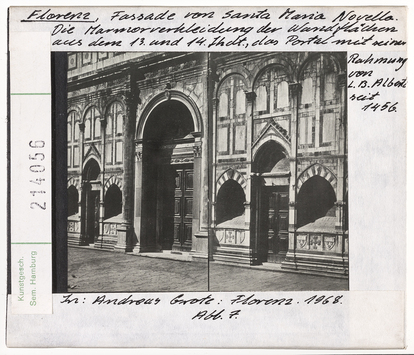 Florenz, Fassade von Santa Maria Novella.
Die Marmorverkleidung der Wandflächen
aus dem 13. und 14. Jhdt., das Portal mit seiner
Rahmung
von
L.B. Alberti
seit
1456.
214056
Kunstgesch.
Sem. Hamburg
In: Andreas Grote: Florenz. 1968.
Abb. 7.